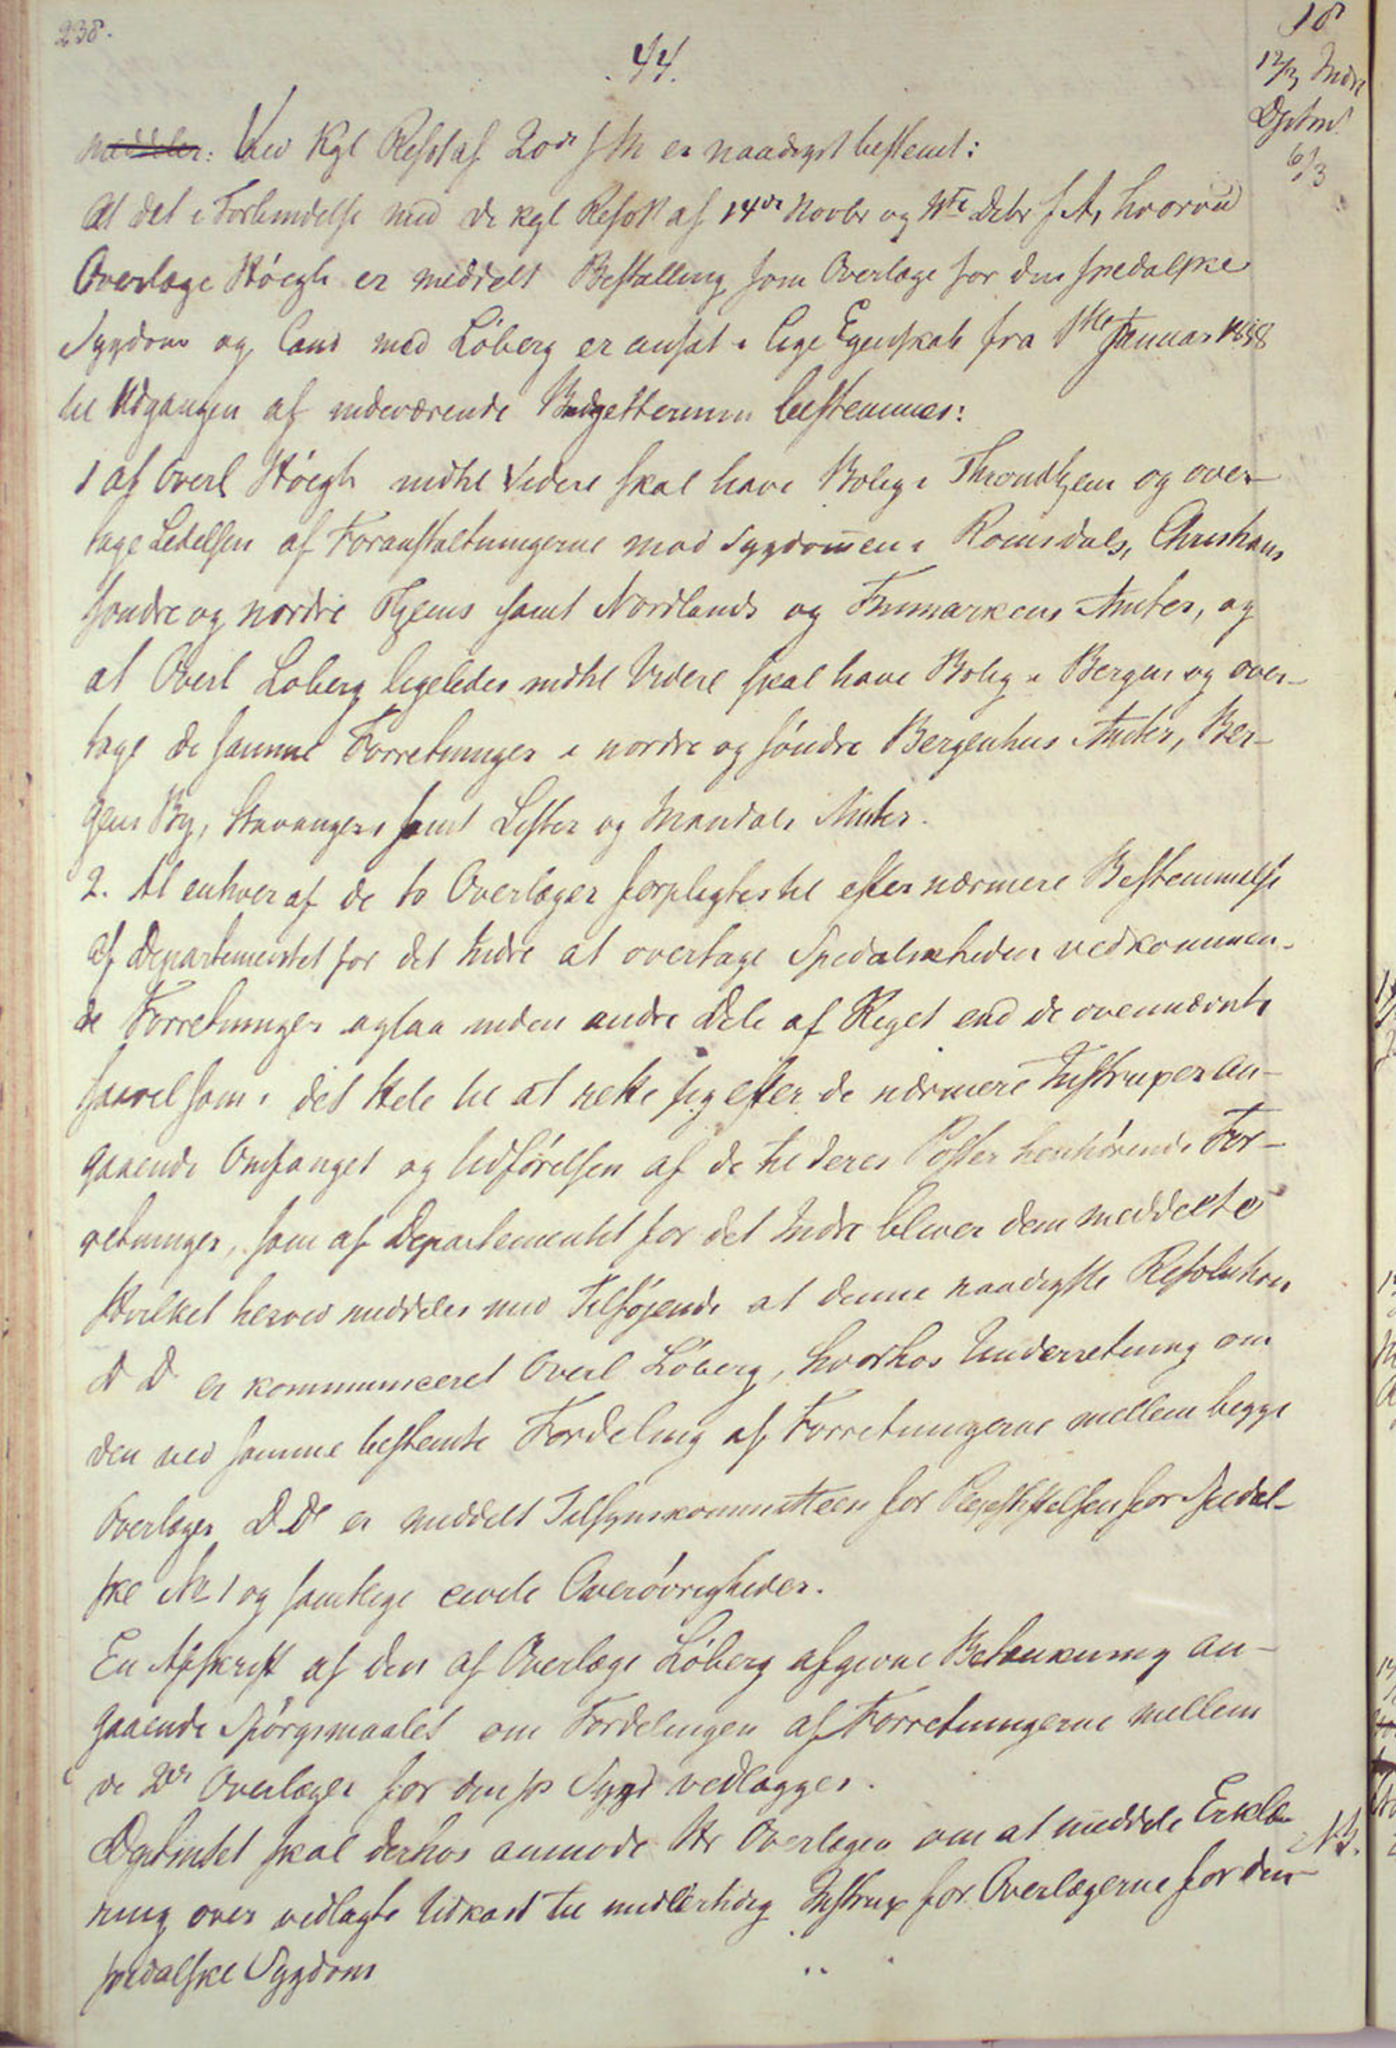 238.
44.
18
12/3 Indre
Dptmt
6/3
meddeler: Ved Kgl Resol af 20de f M er naadigst bestemt:
At det i Forbindelse med de kgl Resoll af 14de Novbr og 11te Debr f A, hvorved
Overlæge Höegh er meddelt Bestalling som Overlæge for den spedalske
Sygdom og Cand med Löberg er ansat i lige Egenskab fra 1ste Januar 1858
til Udgangen af indeværende Budgettermin bestemmes:
1 at Overl Höegh indtil Videre skal have Bolig i Throndhjem og over-
tage Ledelsen af Foranstaltningerne mod Sygdommen i Romsdals, Christians
söndre og nordre Thjems samt Nordlands og Finmarkens Amter, og
at Overl Löberg ligeledes indtil Videre skal have Bolig i Bergen og over-
tage de samme Forretninger i nordre og söndre Bergenhus Amter, Ber-
gens By, Stavangers samt Lister og Mandals Amter.
2. At enhver af de to Overlæger forpligtes til efter nærmere Bestemmelse
af Departementet for det Indre at overtage Spedalskheden vedkommen-
de Forretninger ogsaa inden andre Dele af Riget end de ovennævnte
saavelsom i det Hele til at rette sig efter de nærmere Instruxer an-
gaaende Omfanget og Udförelsen af de til deres Poster henhörende For-
retninger, som af Departementet for det Indre bliver dem meddelte
Hvilket herved meddeles med Tilföjende at denne naadigste Resolution
D D er kommuniceret Overl Löberg, hvorhos Underretning om
den ved samme bestemte Fordeling af Forretningerne mellem begge
Overlæger D. D er meddelt Tilsynskommitteen for Plejestiftelsen for Spedal-
ske No 1 og samtlige civile Overövrigheder.
En Afskrift af den af Overlæge Löberg afgivne Betænkning an-
gaaende Spörgsmaalet om Fordelingen af Forretningerne mellem
de 2de Overlæger for den sp Sygd vedlægges.
Dptmtet skal derhos anmode Hr Overlægen om at meddele Erklæ-
ring over vedlagte Udkast til midlertidig Instrux for Overlægerne for den
spedalske Sygdom